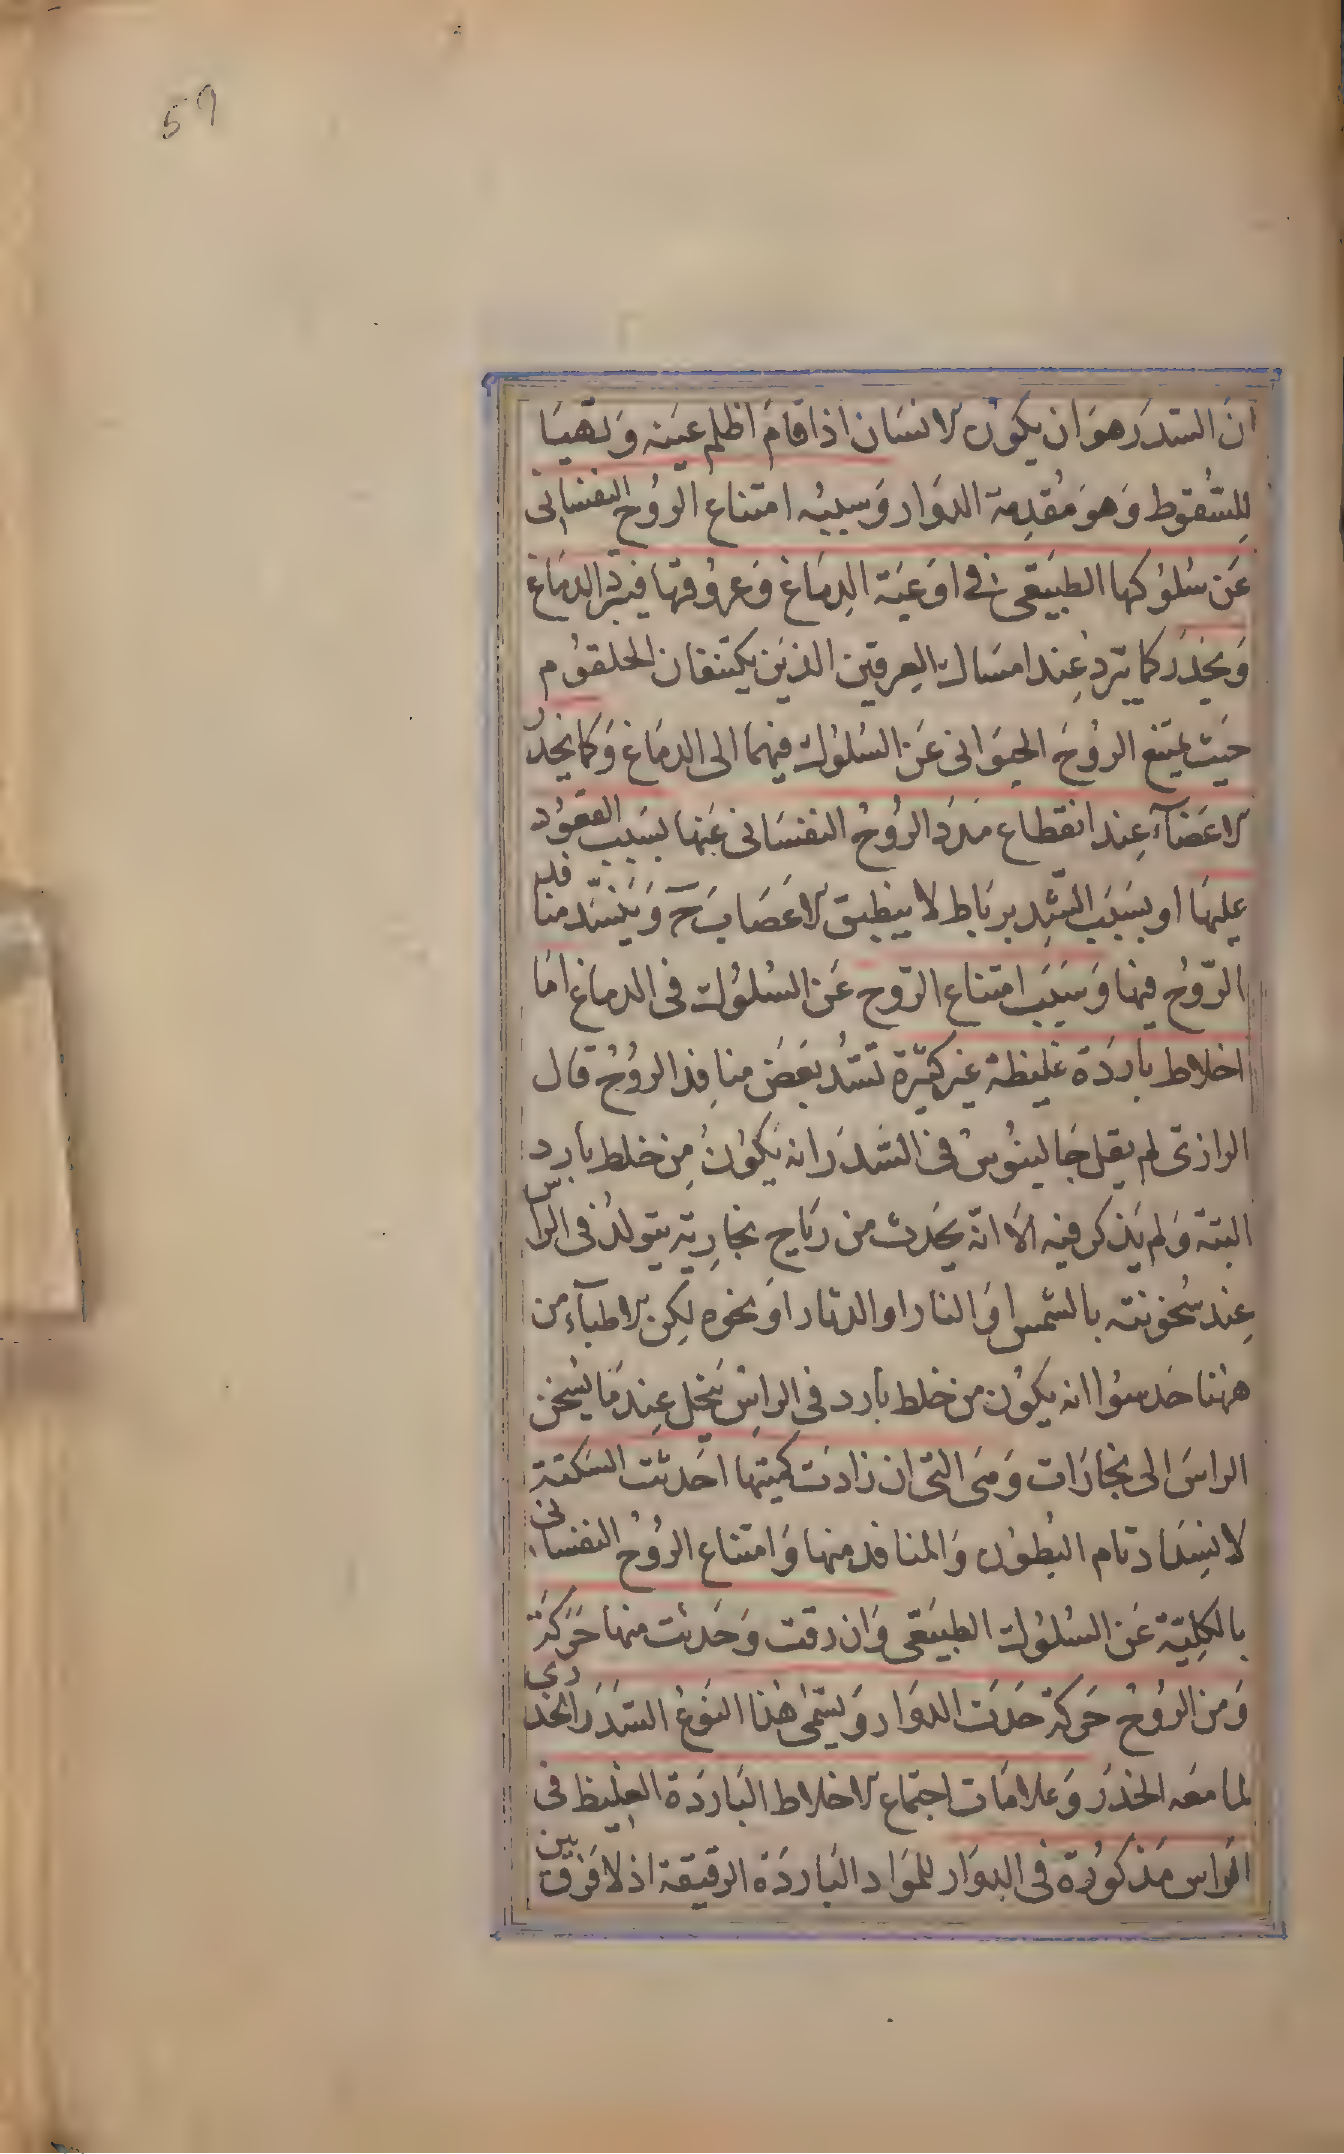 59
ان السَدَر هوَ ان يكون الانسَان اذا قامَ اظلم عَينه وَتهيّا
لِلسُّقوط وَهوَ مُقدِمة الدوَار وَسببُه امتناع الروُح النفسَانى
عَن سُلوُكها الطبيَعى فى اوَعيَة الدِمَاغ وَعروُقها فيبردُ الدمَاغ
وَيخدَر كما يبرد عِند امسَاك العِرقين الذين يكتنفان الحلقوُم
حيَث يمتنع الروُحَ الحيوَانى عَن السُلوُك فيهما الى الدمَاغ وَكما يخدَر
الاعَضآء عِند انقطاع مَدَد الروُح النفسَانى عَنها بسَبب القعوُد
عليهَا او بسَبَب الشّد برباط لا ينطبق الاعَصَاب حَ وَينسَدّ منافذ
الرّوُح فيها وَسَبَب امتناع الرّوح عَن السُلوُك فى الدماغ امَا
اخلاط باردَة غليظة غير كثيرة تسُدّ بَعضَ منافِذ الروُح قال
الرازىّ لم يقل جَالينوُس فى السَدَر انه يَكوُن مِن خلط بارد
البتة وَلم يَذكر فيه الاَ انّه يحَدث من ريَاح بخارِيّة يتولدُ فى الراس
عِند سُخونته بالشمس اوَ النار او الدثار اوَ نحوه لكِن الاطبآء من
ههُنا حَدسوُا انه يكوُن من خلط بارد فى الراسِ يَنحل عِندَ مَا يسُخن
الراسَ الى بخارَات وَهىَ التى ان زادَت كميّتها احَدثت السَكتة
لانسِدَاد تام البُطوُن وَالمنافذ منها وَامتناع الروُح النفسانى
بالكلِيّة عَن السُلوُك الطبيَعى وَان رقت وَحَدثت منها حَرَكَة
وَمن الروُح حَركة حَدَث الدوَار وَيسَمّى هٰذا النوَعُ السَدَرَ الخدَرى
لما مَعه الخدَر وَعلامَات اجتماع الاخلاط البَاردَة الغليظ فى
الراس مَذكوُرة فى الدوَار للموَاد البَاردَة الرقيقة اذ لا فرَق بين